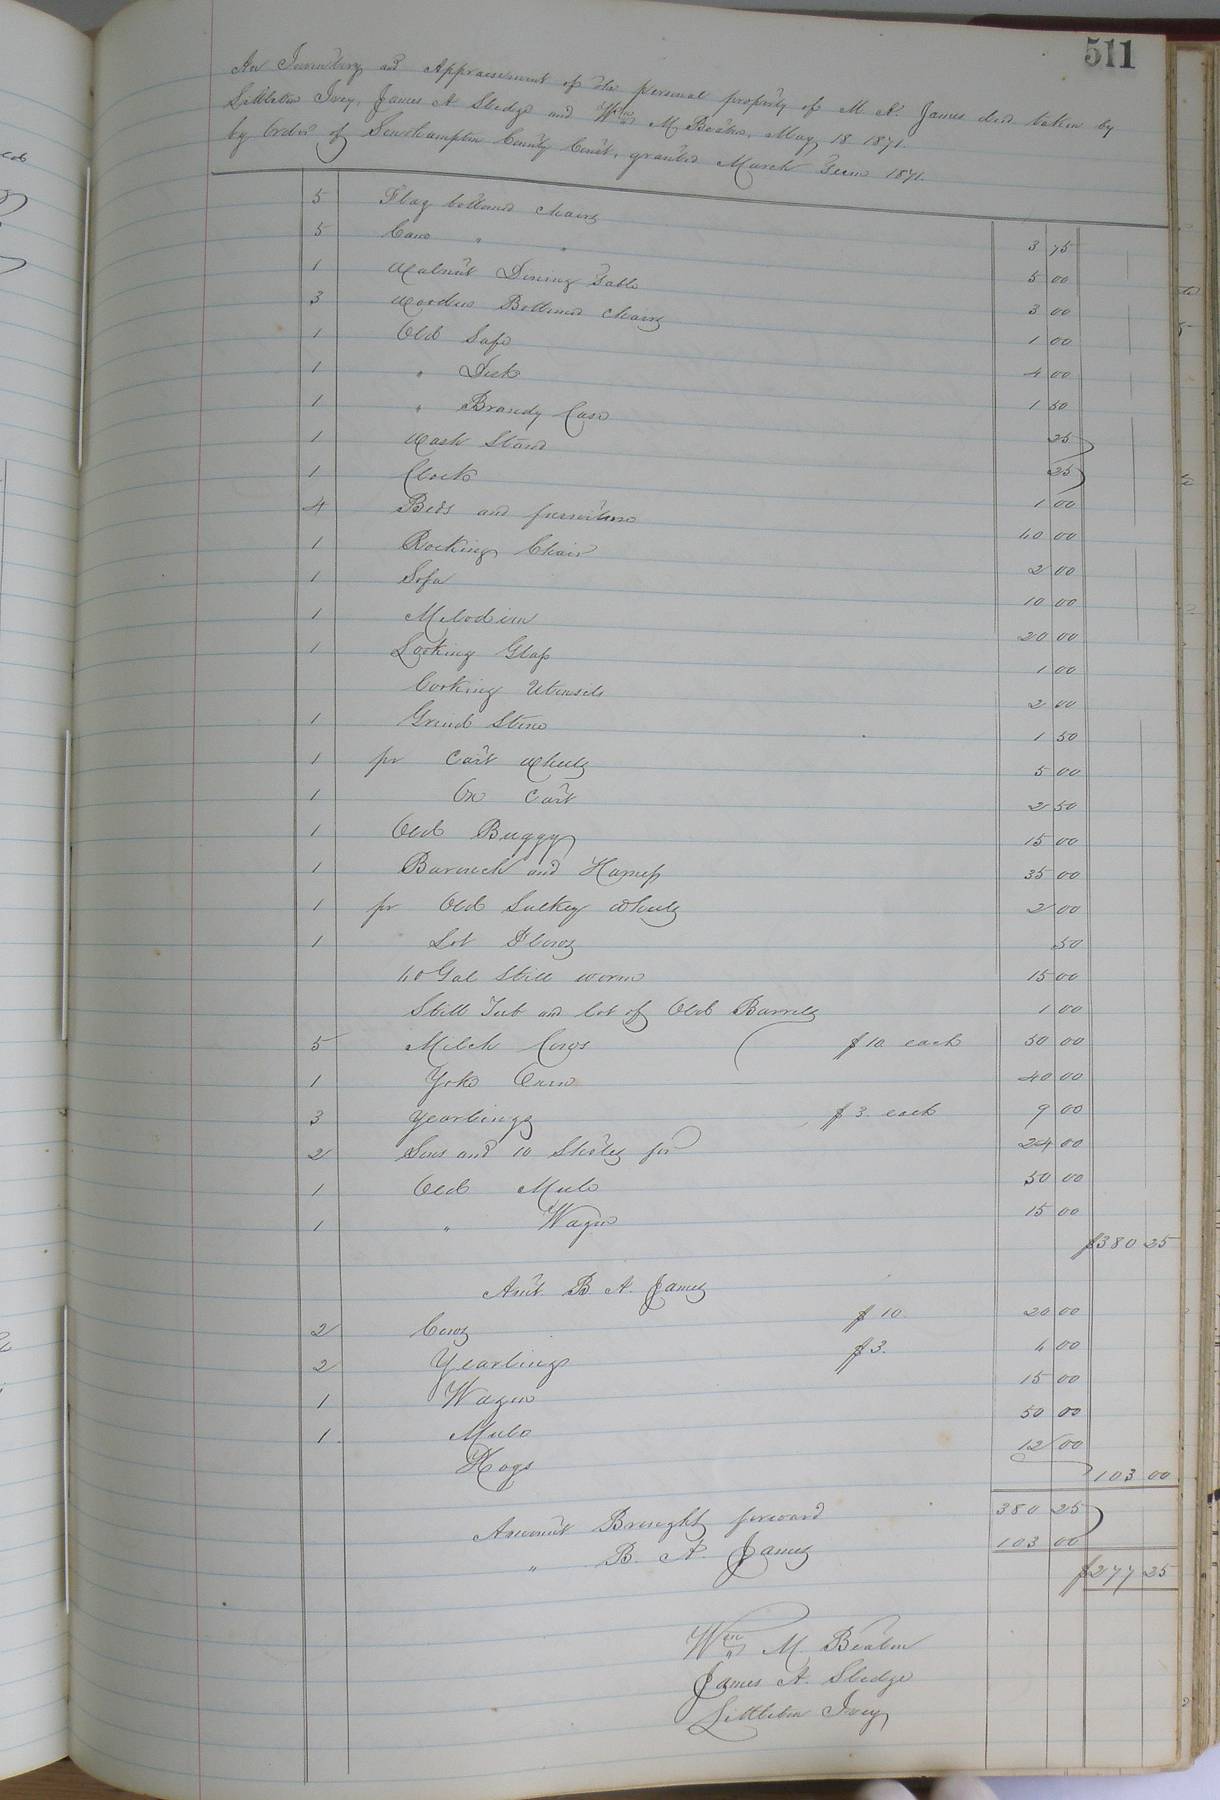 511
An Inventory and Appraisement of the personal property of M. N. James decd taken by
Littleton Ivey, James A Sledge and Wm M Beaton, May 18 1871.
by Order of Southampton County Court, granted March Term 1871.
5 Flag bottomed chairs 3 75
5 Cane " " 5 00
1 Walnut Dining Table 3 00
3 Wooden Bottomed chairs 1 00
1 Old Safe 4 00
1 " Desk 1 50
1 " Brandy Case 25
1 Wash Stand 25
1 Clock 1 00
4 Beds and furniture 40 00
1 Rocking Chair 2 00
1 Sofa 10 00
1 Melodeon 20 00
1 Looking Glass 1 00
Cooking Utensils 2 00
1 Grind Stone 1 50
1 pr Cart Wheels 5 00
1 Ox Cart 2 50
1 Old Buggy 15 00
1 Barouch and Harness 35 00
1 pr Old Sulkey Wheels 2 00
1 Lot Plows 50
40 Gal Still worm 15 00
Still Tub and lot of Old Barrels 1 00
5 Milch Cows $10 each 50 00
1 Yoke Oxen 40 00
3 Yearlings $3. each 9 00
2 Sows and 10 Shoats for 24 00
1 Old Mule 50 00
1 " Wagon 15 00
$380 25
Amt. B. A. James
2 Cows $10. 20 00
2 Yearlings $3. 6 00
1 Wagon 15 00
1. Mule 50 00
Hogs 12 00
103 00
Amount Brought forward 380 25
" B. A. James 103 00
$277 25
Wm M. Beaton
James A. Sledge
Littleton Ivey